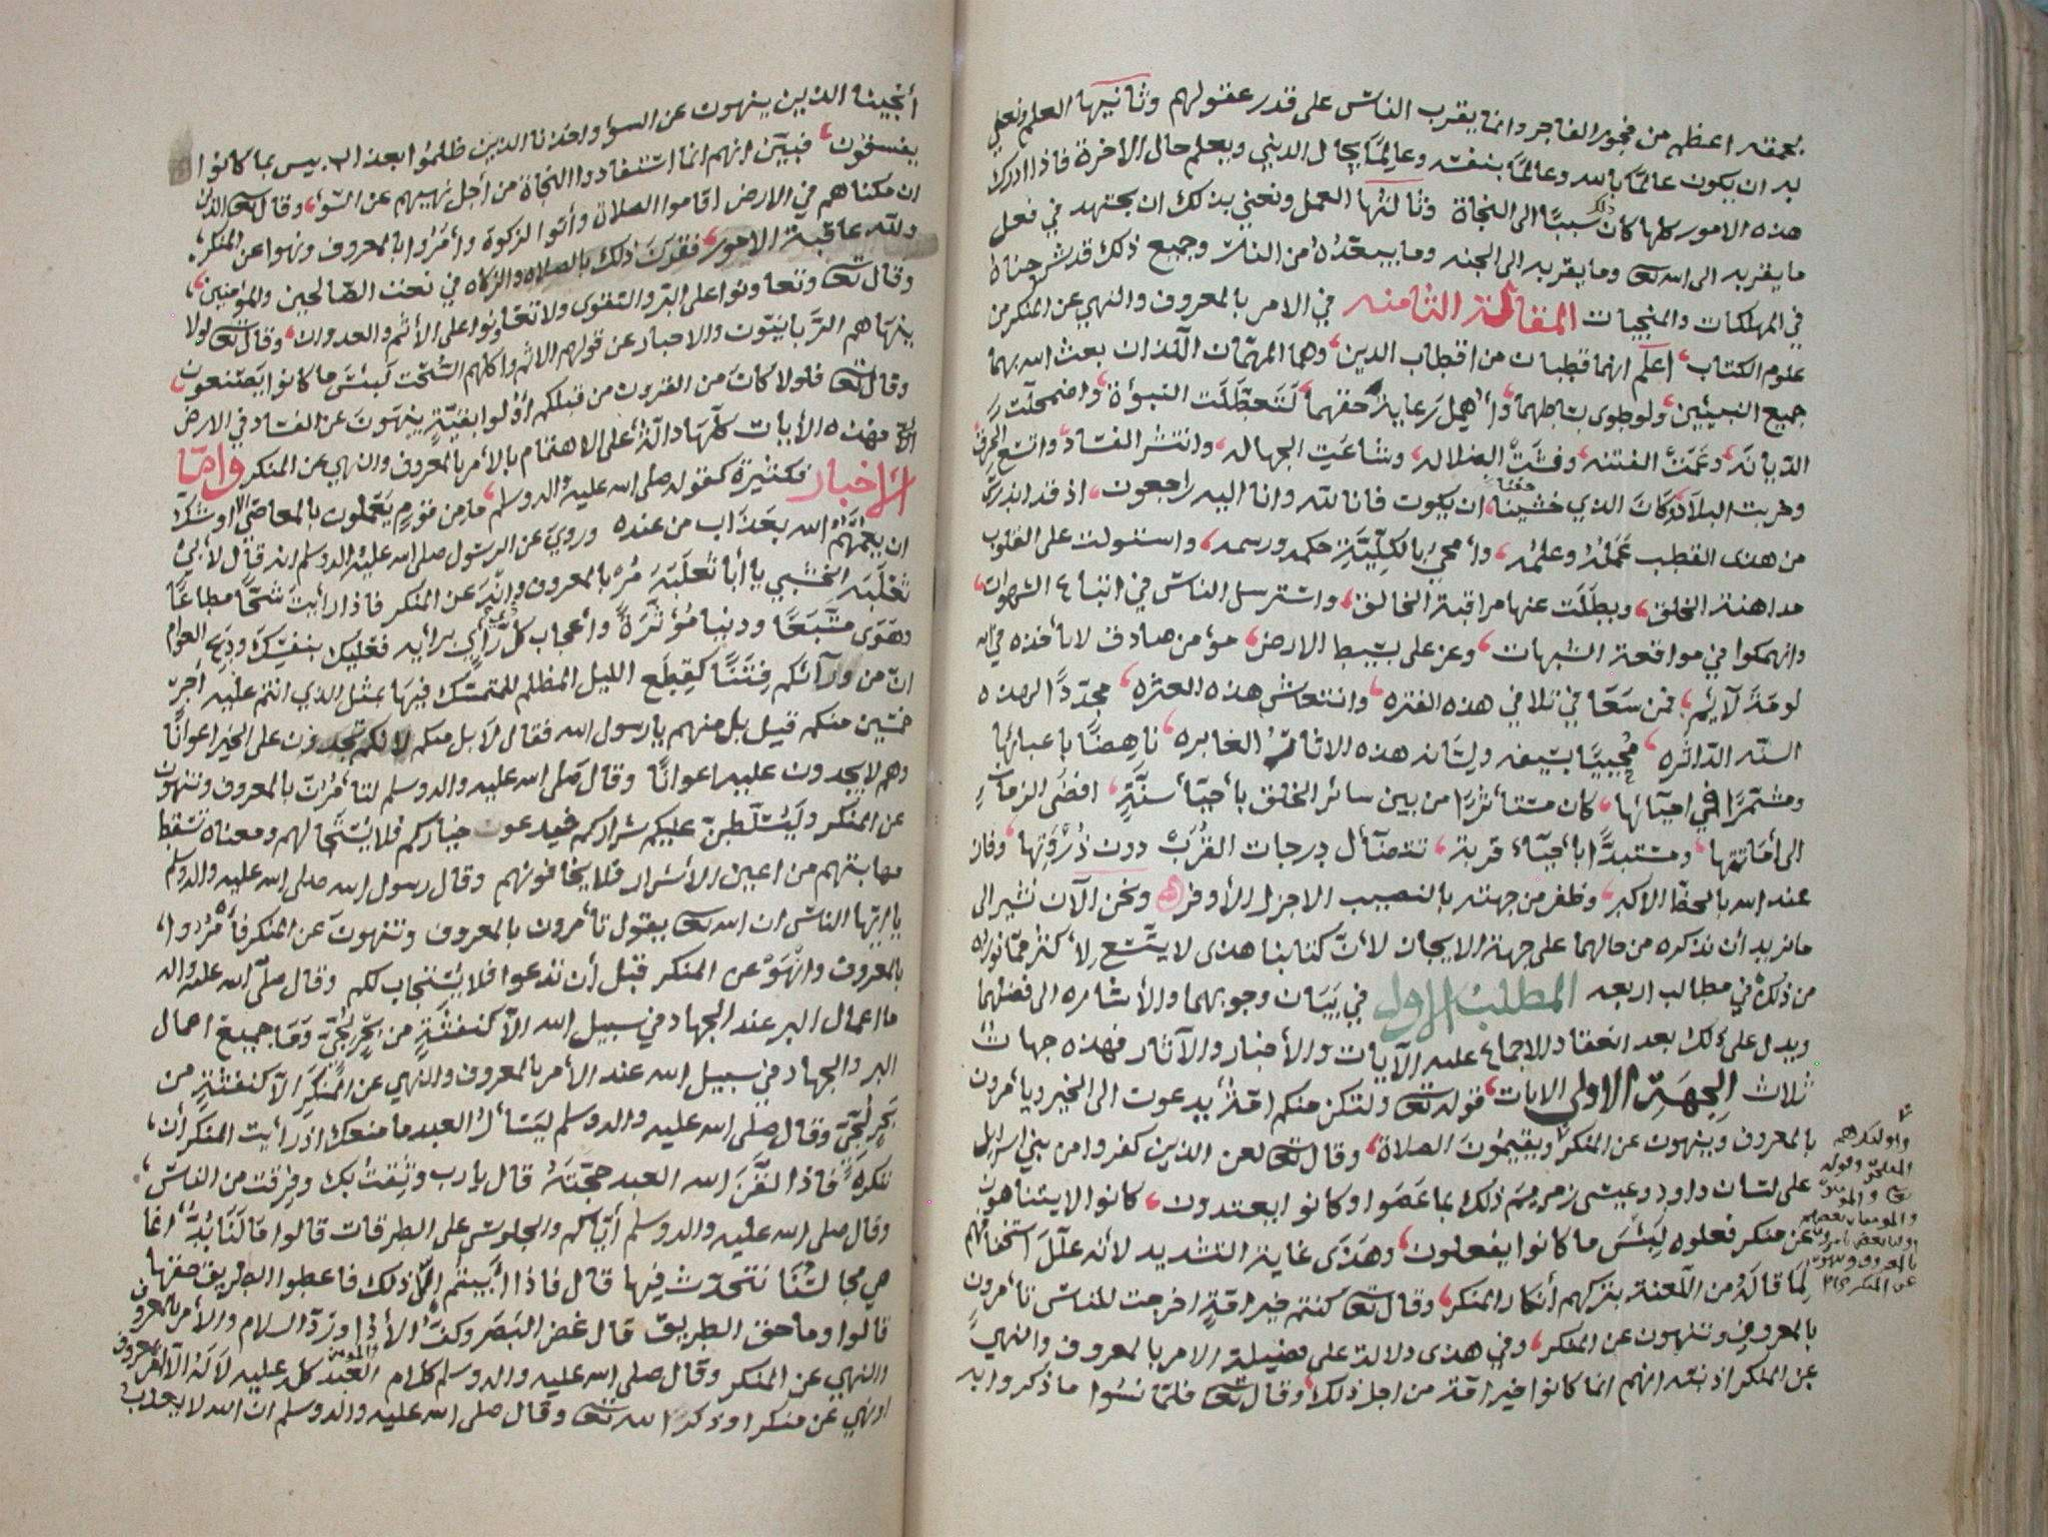 بحمقه اعظم من فجور الفاجر وانما يقرب الناس على قدر عقولهم وثانيها العلم ونعني
به ان يكون عالمًا بالله وعالمًا بنفسه وعالمًا بحال الدنيى ويعلم حال الاخرة فاذا ادرك
هذه الامور كلها كان ذلك سببًا الى النجاة وثالثها العمل ونعني بذلك ان يجتهد في فعل
ما يقربه الى الله تعا وما يقربه الى الجنه وما يبعده من النار وجميع ذلك قد شرحناه
في المهلكات والمنجيات المقالة الثامنه في الامر بالمعروف والنهي عن المنكر من
علوم الكتاب اعلم انهما قطبان من اقطاب الدين وهما المهمان اللذان بعث الله بهما
جميع النبيئين ولو طوى بساطهما وأهمل رعاية حقهما لتعطلت النبوءة واضمحلت
الديانة وعمت الفتنه وفشت الضلاله وشاعت الجهاله وانتشر الفساد واتسع الخرق
وخربت البلاد وكان الذي خشينا ان يكون فانا لله وانا اليه راجعون اذ قد اندرس
من هذى القطب عمله وعلمه وأمحى بالكلية حكمه ورسمه واستولت على القلوب
مداهنة الخلق وبطلت عنها مراقبة الخالق واسترسل الناس في اتباع الشهوات
وانهمكوا في مواقعة الشبهات وعز على بسيط الارض مؤمن صادق لا تأخذه في الله
لومة لآئم فمن سعا في تلافي هذه الفتره وانتعاش هذه العثره مجددًا لهذه
السنه الداثره محييًا بسيفه ولسانه هذه الاثار الغابره ناهضًا باعبائها
ومشمرًا في احيآئها كان مستأثرًا من بين سائر الخلق بأحيآء سنة افضى الزمان
الى أماتتها ومستبدًا بأحيآء قربة تتضآأل درجات القرب دون ذروتها وفاز
عند الله بالحظ الاكبر وظفر من جهته بالنصيب الاجزل الأوفر ونحن الآن نشير الى
ما نريد أن نذكره من حالهما على جهة الايجاز لأن كتابنا هذى لا يتسع لأكثر مما نورده
من ذلك في مطالب اربعه المطلب الاول في بيان وجوبهما والأشاره الى فضلهما
ويدل على ذلك بعد انعقاد الاجماع عليه الآيات والأخبار والآثار فهذه جهات
ثلاث الجهة الاولى الايات قوله تعا ولتكن منكم امة يدعون الى الخير ويأمرون
بالمعروف وينهون عن المنكر ويقيمون الصلاة وقال تعا لعن الذين كفروا من بني اسرايل
على لسان داود وعيسى بن مريم ذلك بما عصوا وكانوا يعتدون كانوا لا يتناهون
عن منكر فعلوه لبئس ما كانوا يفعلون وهذى غاية التشديد لأنه علل استحقاقهم
لما قاله من اللعنة بتركهم أنكار المنكر وقال تعا كنتم خير امة اخرجت للناس تأمرون
بالمعروف وتنهون عن المنكر وفي هذى دلالة على فضيلة الامر بالمعروف والنهي
عن المنكر اذ نبه انهم انما كانوا خير امة من اجل ذلك وقال تعا فلما نسوا ما ذكروا به
واولئك هم
المفلحون وقوله
تعا والمومنون
والمومنات بعضهم
اوليا بعض يامرون
بالمعروف وينهون
عن المنكر
أنجينا الذين ينهون عن السوء واخذنا الذين ظلموا بعذاب بيس بما كانوا
يفسقون فبين انهم انما استفادوا النجاة من أجل نهيهم عن السوء وقال تعا الذين
ان مكناهم في الارض اقاموا الصلاة وأتوا الزكوة وأمروا بالمعروف ونهوا عن المنكر
ولله عاقبة الامور فقرن ذلك بالصلاه والزكاه في نعت الصالحين والمؤمنين
وقال تعا وتعاونوا على البر والتقوى ولا تعاونوا على الأثم والعدوان وقال تعا لولا
ينهاهم الربانيون والاحبار عن قولهم الاثم واكلهم السحت لبئس ما كانوا يصنعون
وقال تعا فلولا كان من القرون من قبلكم أولوا بقية ينهون عن الفساد في الارض
الآية فهذه الأيات كلها دالة على الاهتمام بالأمر بالمعروف والنهي عن المنكر وامّا
الأخبار فكثيرة كقوله صلى الله عليه واله وسلم ما من قوم يعملون بالمعاصي الا اوشك
ان يعمهم الله بعذاب من عنده وروي عن الرسول صلى الله عليه واله وسلم انه قال لأبي
ثعلبة الخشني يا أبا ثعلبة مر بالمعروف وانه عن المنكر فاذا رأيت شحًا مطاعًا
وهوى متبعًا ودنيا مؤثرة وأعجاب كل ذي رأي برأيه فعليك بنفسك ودع العوام
ان من ورآئكم فتنًا كقطع الليل المظلم للمتمسك فيها بمثل الذي انتم عليه أجر
خمسين منكم قيل بل منهم يا رسول الله فقال لا بل منكم لانكم تجدون على الخير اعوانًا
وهم لا يجدون عليه اعوانًا وقال صلى الله عليه واله وسلم لتأمرن بالمعروف وتنهون
عن المنكر وليسلطن عليكم شراركم فيدعون خياركم فلا يستجا لهم ومعناه تسقط
مهابتهم من اعين الأشرار فلا يخافونهم وقال رسول الله صلى الله عليه واله وسلم
يا ايها الناس ان الله تعا يقول تأمرون بالمعروف وتنهون عن المنكر فأمروا
بالمعروف وانهو عن المنكر قبل أن تدعوا فلا يستجاب لكم وقال صلى الله عليه واله
ما اعمال البر عند الجهاد في سبيل الله الا كنفثة من بحر لجي وما جميع اعمال
البر والجهاد في سبيل الله عند الأمر بالمعروف والنهي عن المنكر الا كنفثة من
بحر لجي وقال صلى الله عليه واله وسلم ليسأل العبد ما منعك اذ رأيت المنكر أن
تنكره فاذا لقن الله العبد حجته قال يا رب وثقت بك وفرقت من الناس
وقال صلى الله عليه واله وسلم أياكم والجلوس على الطرقات قالوا ما لنا بد انما
هي مجالسنا نتحدث فيها قال فاذا أبيتم الا ذلك فاعطوا الطريق حقها
قالوا وما حق الطريق قال غض البصر وكف الأذى ورد السلام والأمر بالمعروف
والنهي عن المنكر وقال صلى الله عليه واله وسلم كلام العبد المومن كله عليه لا له الا أمر بمعروف
او نهي عن منكر او ذكر الله تعا وقال صلى الله عليه واله وسلم ان الله لا يعذب